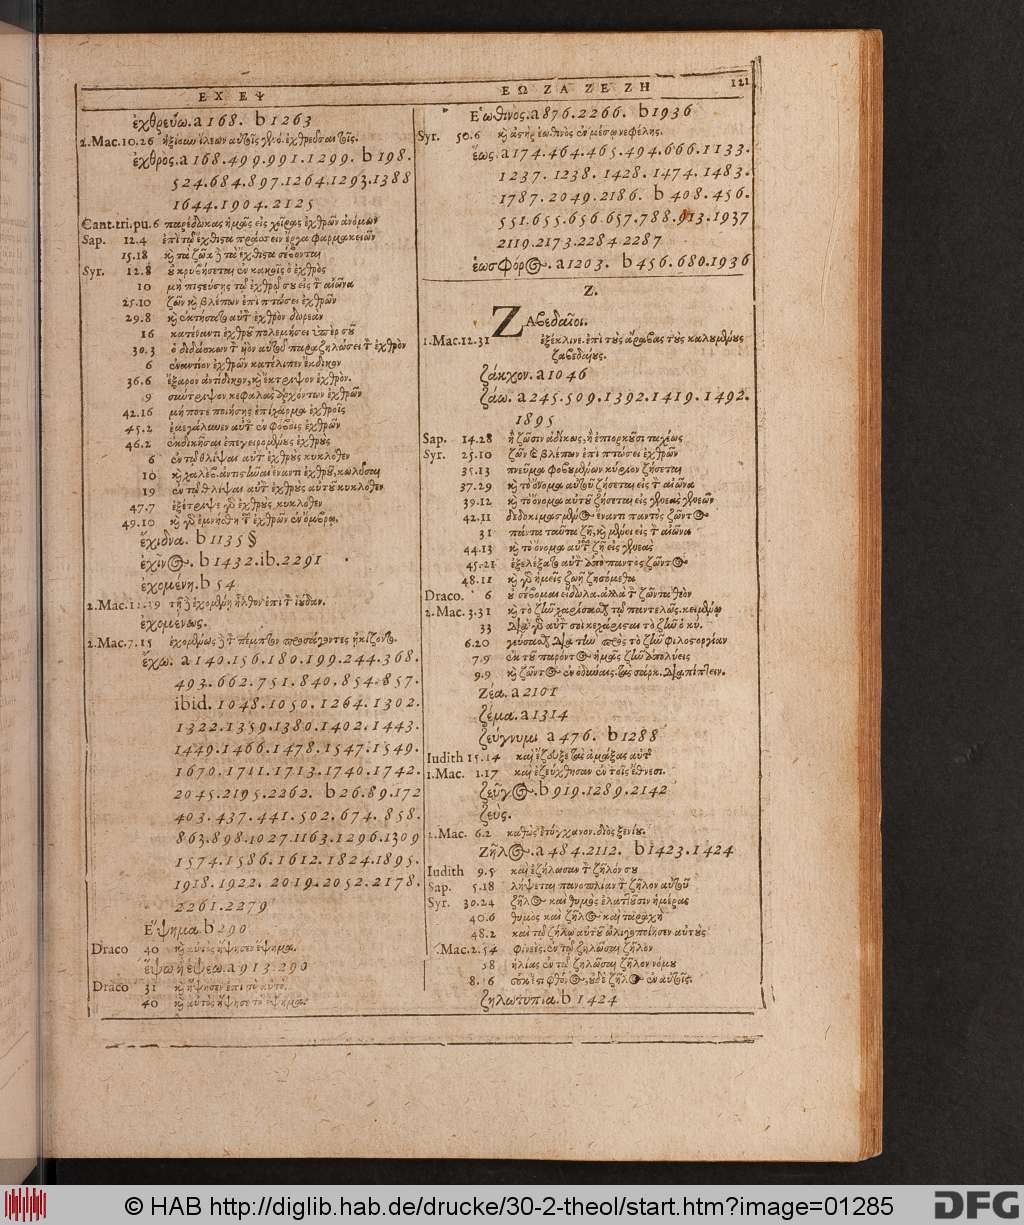 Ε Χ Ε Ψ
ἐχθρεύω. a 168. b 1263
2.Mac. 10.26 αὐτοῖς
ἐχθρος. a 168.499.991.1299. b 198.
524.684.897.1264.1293.1388
1644.1904.2125
Cant.tri.pu. 6 παρέδωκας ἡμᾶς εἰς χεῖρας ἐχθρῶν ἀνόμων
Sap. 12.4 ἐπὶ τῷ ἔχθιστα πράσσειν ἔργα φαρμακειῶν
15.18 καὶ τὰ ζῶα τὰ ἔχθιστα σέβονται
Syr. 12.8 οὐ κρυβήσεται ἐν κακοῖς ὁ ἐχθρὸς
10 μὴ πιστεύσῃς τῷ ἐχθρῷ σου εἰς τὸν αἰῶνα
25.10 ζῶν καὶ βλέπων ἐπὶ πτώσει ἐχθρῶν
29.8 καὶ ἐκτήσατο αὐτὸν ἐχθρὸν δωρεὰν
16 κατέναντι ἐχθροῦ πολεμήσει ὑπὲρ σοῦ
30.3 ὁ διδάσκων τὸν υἱὸν αὐτοῦ παραζηλώσει τὸν ἐχθρὸν
6 ἐναντίον ἐχθρῶν κατέλιπεν ἔκδικον
36.6 ἔξαρον ἀντίδικον, καὶ ἔκτριψον ἐχθρὸν.
9 σύντριψον κεφαλὰς ἀρχόντων ἐχθρῶν
42.16 μή ποτε ποιήσῃς ἐπίχαρμα ἐχθροῖς
45.2 ἐμεγάλυνεν αὐτὸν ἐν φόβοις ἐχθρῶν
46.2 ἐκδικῆσαι ἐπεγειρομένους ἐχθροὺς
6 ἐν τῷ θλῖψαι αὐτὸν ἐχθροὺς κυκλόθεν
10 ἔναντι ἐχθροῦ, κωλῦσαι
19 ἐν τῷ θλῖψαι αὐτὸν ἐχθροὺς αὐτοῦ κυκλόθεν
47.7 ἐξέτριψε γὰρ ἐχθροὺς κυκλόθεν
49.10 καὶ γὰρ ἐμνήσθη τῶν ἐχθρῶν ἐν ὄμβρῳ.
ἔχιδνα. b 1135 §
ἐχῖνος. b 1432. ib. 2291
ἐχομένη. b 54
2.Mac. 12.39 τῇ δὲ ἐχομένῃ ἦλθον ἐπὶ τὸν ἰούδαν.
ἐχομένως.
2.Mac. 7.15 ἐχομένως δὲ τὸν πέμπτον προσάγοντες ᾐκίζοντο.
ἔχω. a 140.156.180.199.244.368.
493.662.751.840.854.857.
ibid. 1048.1050.1264.1302.
1322.1359.1380.1402.1443.
1449.1466.1478.1547.1549.
1670.1711.1713.1740.1742.
2045.2195.2262. b 26.89.172
403.437.441.502.674.858.
863.898.1027.1163.1296.1309
1574.1586.1612.1824.1895.
1918.1922.2019.2052.2178.
2261.2279
Ἕψημα b 290
Draco 40 καὶ αὐτὸς ἥψησεν ἕψημα.
ἕψω ἢ ἑψέω. a 913.290
Draco 31 καὶ ἥψησεν
40 καὶ αὐτὸς ἥψησε τὸ ἕψημα
Ε Ω Ζ Α Ζ Ε Ζ Η 121
Ἑωθινὸς. a 876.2266. b 1936
Syr. 50.6 ἀστὴρ ἑωθινὸς ἐν μέσῳ νεφέλης.
ἕως. a 174.464.465.494.666.1133.
1237.1238.1428.1474.1483.
1787.2049.2186. b 408.456.
551.655.656.657.788.913.1937
2119.2173.2284.2287
ἑωσφόρος. a 1203. b 456.680.1936
Z.
Ζαβεδαῖοι.
1.Mac. 12.31 ἐξέκλινε ἐπὶ τοὺς ἄραβας τοὺς καλουμένους
ζαβεδαίους.
ζάκχον. a 1046
ζάω. a 245.509.1392.1419.1492.
1895
Sap. 14.28 ἢ ζῶσιν ἀδίκως, ἢ ἐπιορκοῦσι ταχέως
Syr. 25.10 ζῶν καὶ βλέπων ἐπὶ πτώσει ἐχθρῶν
35.13 πνεῦμα φοβουμένων κύριον ζήσεται
37.29 καὶ τὸ ὄνομα αὐτοῦ ζήσεται εἰς τὸν αἰῶνα
39.12 καὶ τὸ ὄνομα αὐτοῦ ζήσεται εἰς γενεὰς γενεῶν
42.11 δεδοκιμασμένος ἔναντι παντὸς ζῶντος
31 πάντα ταῦτα ζῇ, καὶ μένει εἰς τὸν αἰῶνα
44.13 καὶ τὸ ὄνομα αὐτῶν ζῇ εἰς γενεὰς
45.21 ἐξελέξατο αὐτὸν ἀπὸ παντος ζῶντος
48.11 καὶ γὰρ ἡμεῖς ζωῇ ζησόμεθα
Draco. 6 οὐ σέβομαι εἴδωλα. ἀλλὰ τὸν ζῶντα θεὸν
2.Mac. 3.31 καὶ τὸ ζῆν χαρίσασθαι τῷ παντελῶς. κειμένῳ
33 διὰ γὰρ αὐτὸν σοι κεχάρισται τὸ ζῆν ὁ κύ.
6.20 γεύσασθαι διὰ τὴν πρὸς τὸ ζῆν φιλοστοργίαν
7.9 ἐκ τοῦ παρόντος ἡμᾶς ζῆν ἀπολύεις
9.9 καὶ ζῶντος ἐν ὀδύναις. τὰς σαρκ. διαπίπτειν.
Ζέα. a 2101
ζέμα. a 1314
ζεύγνυμι a 476. b 1288
Iudith 15.14 καὶ ἔζευξε τὰς ἁμάξας αὐτῆς
1.Mac. 1.17 καὶ ἐζεύχθησαν ἐν τοῖς ἔθνεσι.
ζεῦγος. b 919.1289.2142
ζεὺς.
2.Mac. 6.2 καθὼς ἐτύγχανον. διὸς ξενίου.
Ζῆλος. a 484.2112. b 1423.1424
Iudith 9.5 καὶ ἐζήλωσαν τὸν ζῆλόν σου
Sap. 5.18 λήψεται πανοπλίαν τὸν ζῆλον αὐτοῦ
Syr. 30.24 ζῆλος καὶ θυμὸς ἐλαττοῦσιν ἡμέρας
40.6 θυμὸς καὶ ζῆλος καὶ ταραχὴ
48.2 καὶ τῷ ζήλῳ αὐτοῦ ὠλιγοποίησεν αὐτοὺς
1.Mac. 2.54 φινεὲς. ἐν τῷ ζηλῶσαι ζῆλον
58 ἠλίας ἐν τῷ ζηλῶσαι ζῆλον νόμου
8.16 οὐκ ἔστι φθόνος, οὐδὲ ζῆλος ἐν αὐτοῖς.
ζηλωτυπία. b 1424
© HAB http://diglib.hab.de/drucke/30-2-theol/start.htm?image=01285
DFG